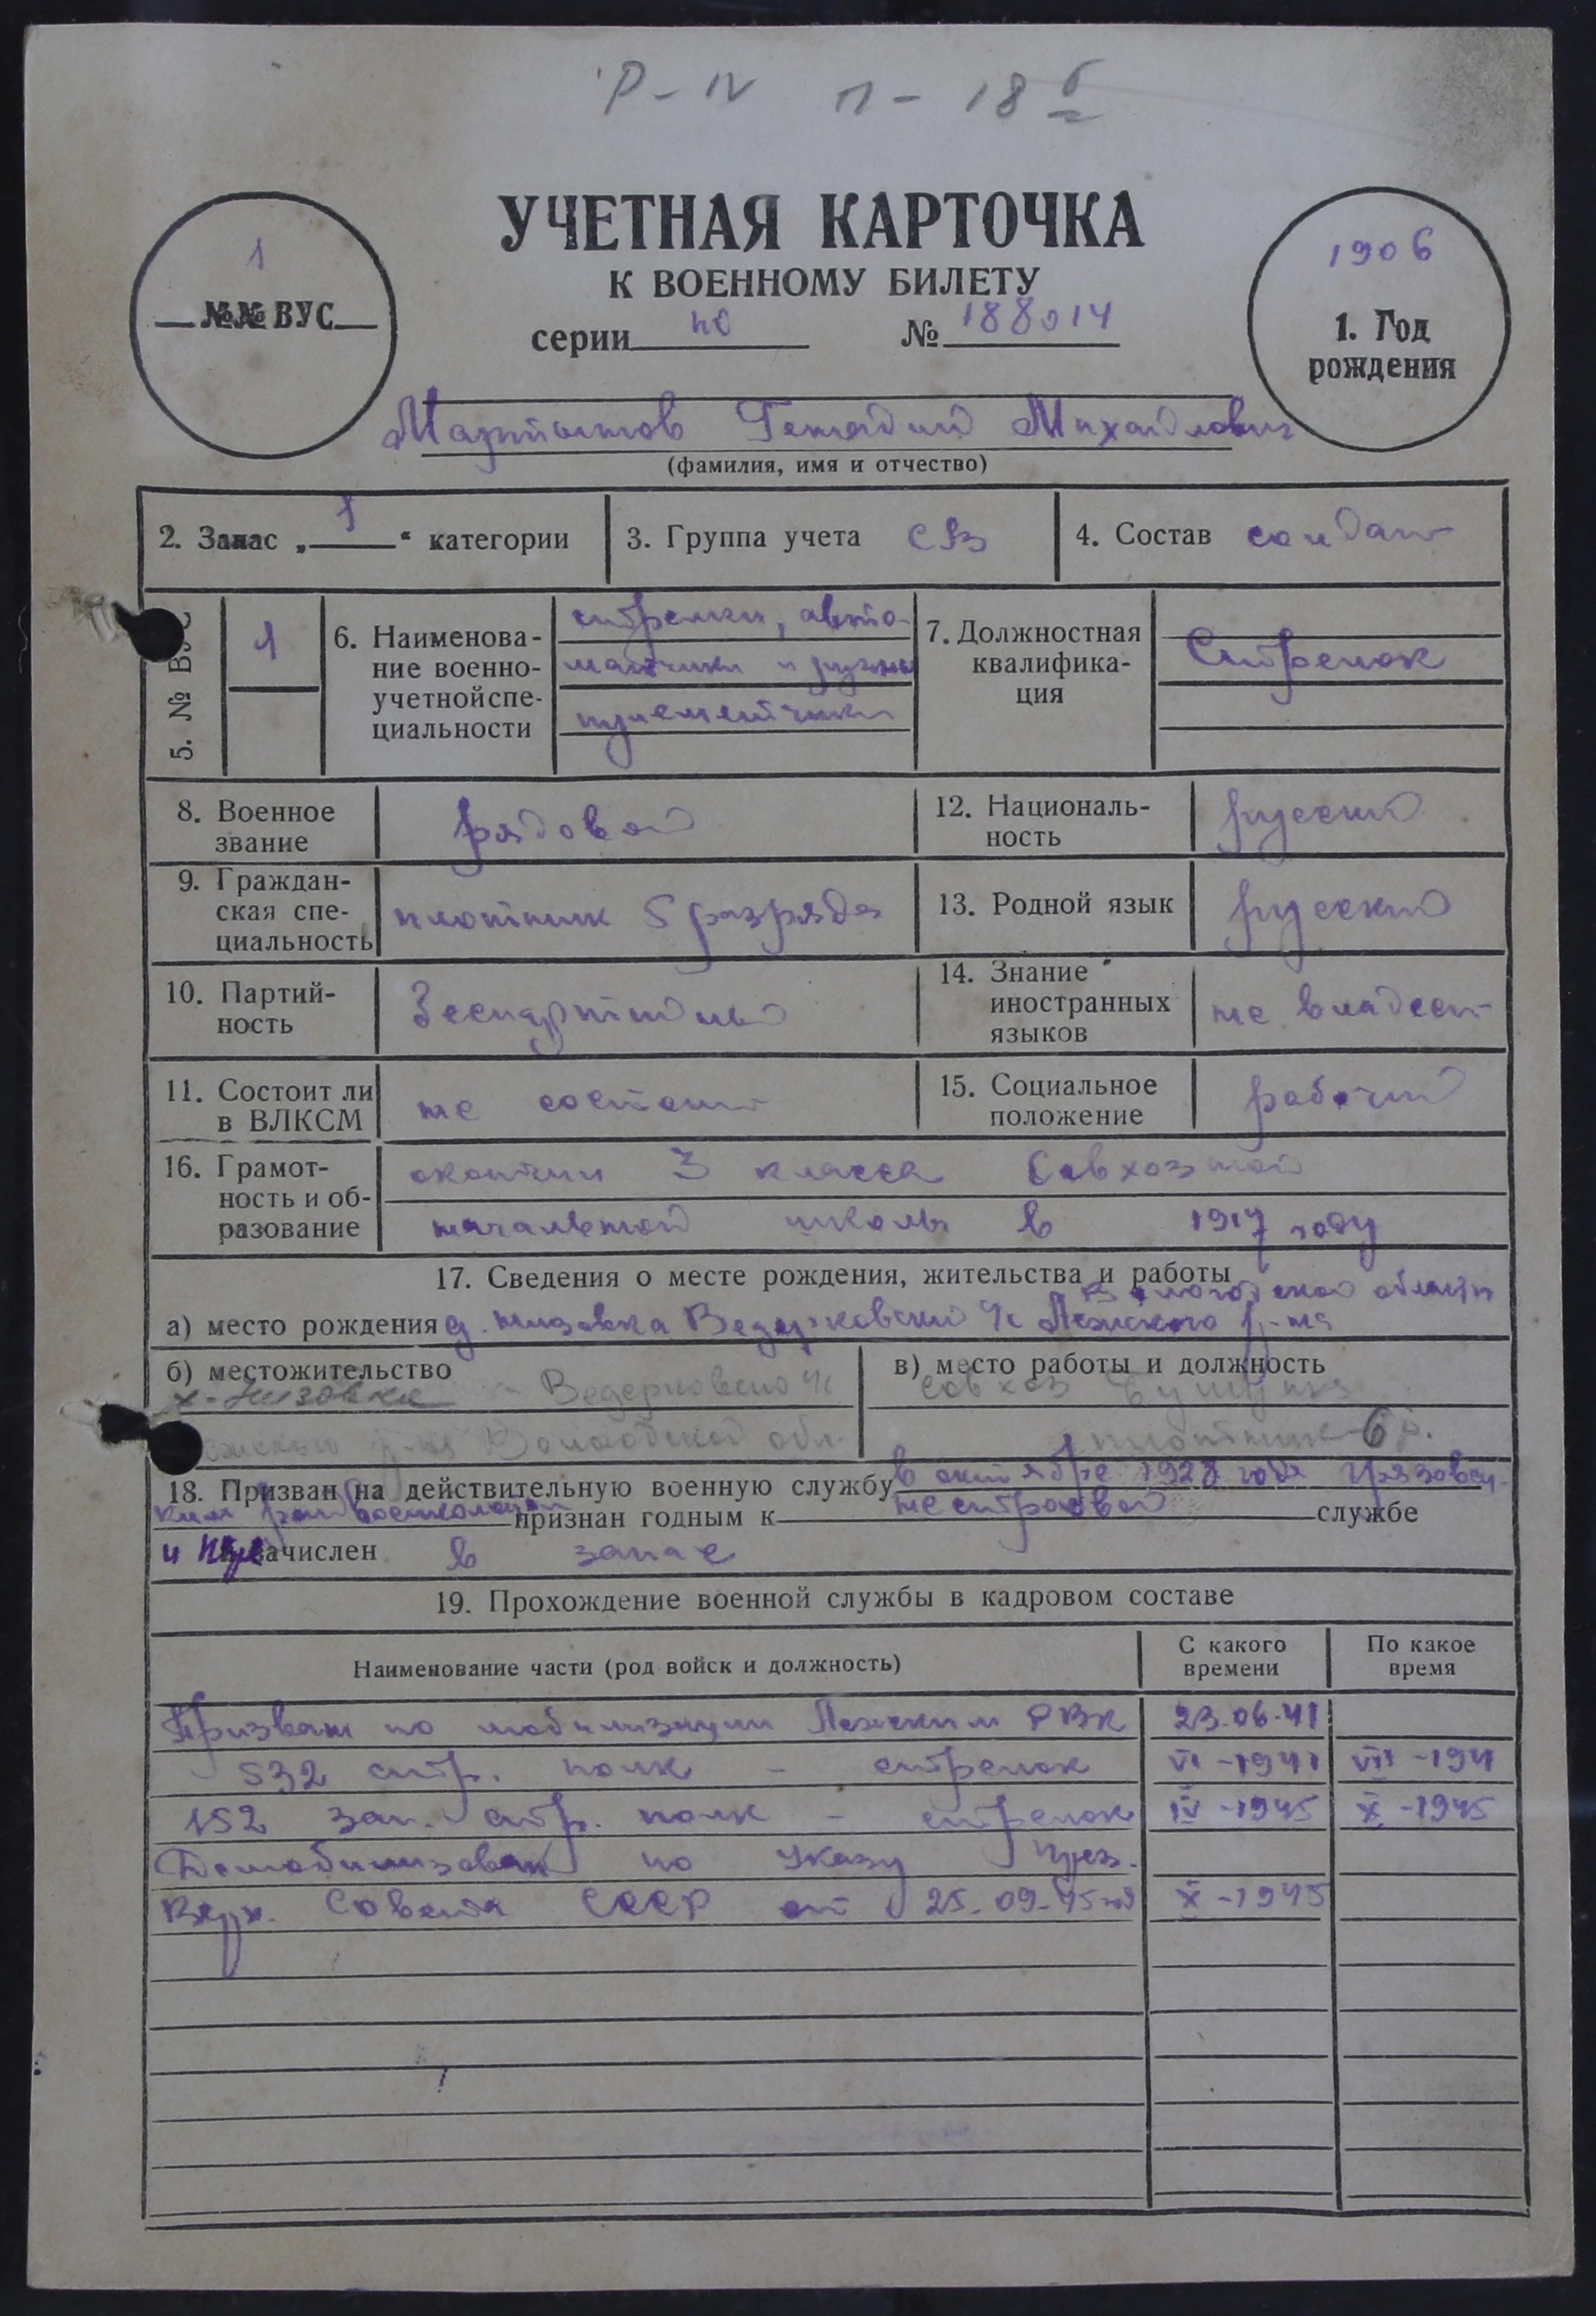 Р-IV п-18 б
УЧЕТНАЯ КАРТОЧКА
К ВОЕННОМУ БИЛЕТУ
1
№№ ВУС
серии НО № 188014
1906
1. Год
рождения
Мартынов Генадий Михайлович
(фамилия, имя и отчество)
2. Запас „1“ категории
3. Группа учета СВ
4. Состав солдат
5. № ВУС 1
6. Наименова-
ние военно-
учетной спе-
циальности
стрелки, авто-
матчики и ручные
пулеметчики
7. Должностная
квалифика-
ция
Стрелок
8. Военное
звание
рядовой
12. Националь-
ность
русский
9. Граждан-
ская спе-
циальность
плотник 5 разряда
13. Родной язык русский
10. Партий-
ность
Беспартийный
14. Знание
иностранных
языков
не владеет
11. Состоит ли
в ВЛКСМ
не состоит
15. Социальное
положение
рабочий
16. Грамот-
ность и об-
разование
окончил 3 класса Совхозной
начальной школы в 1917 году
17. Сведения о месте рождения, жительства и работы
Вологодской области
а) место рождения д. Низовка Ведерковский с/с Лежского р-на
б) местожительство
х-Низовка Ведерковского с/с
Лежского р-на Вологодской обл.
в) место работы и должность
совхоз
плотник 6 р.
18. Призван на действительную военную службу в октябре 1928 года Грязовец-
ким райвоенкоматом признан годным к нестроевой службе
и зачислен в запас
19. Прохождение военной службы в кадровом составе
Наименование части (род войск и должность)
С какого
времени
По какое
время
Призван по мобилизации Лежским РВК 23.06.41
532 стр. полк - стрелок VI-1941 VII-1941
152 зап. стр. полк - стрелок IV-1945 X-1945
Демобилизован по Указу През.
Верх. Совета СССР от 25.09.45 год X-1945